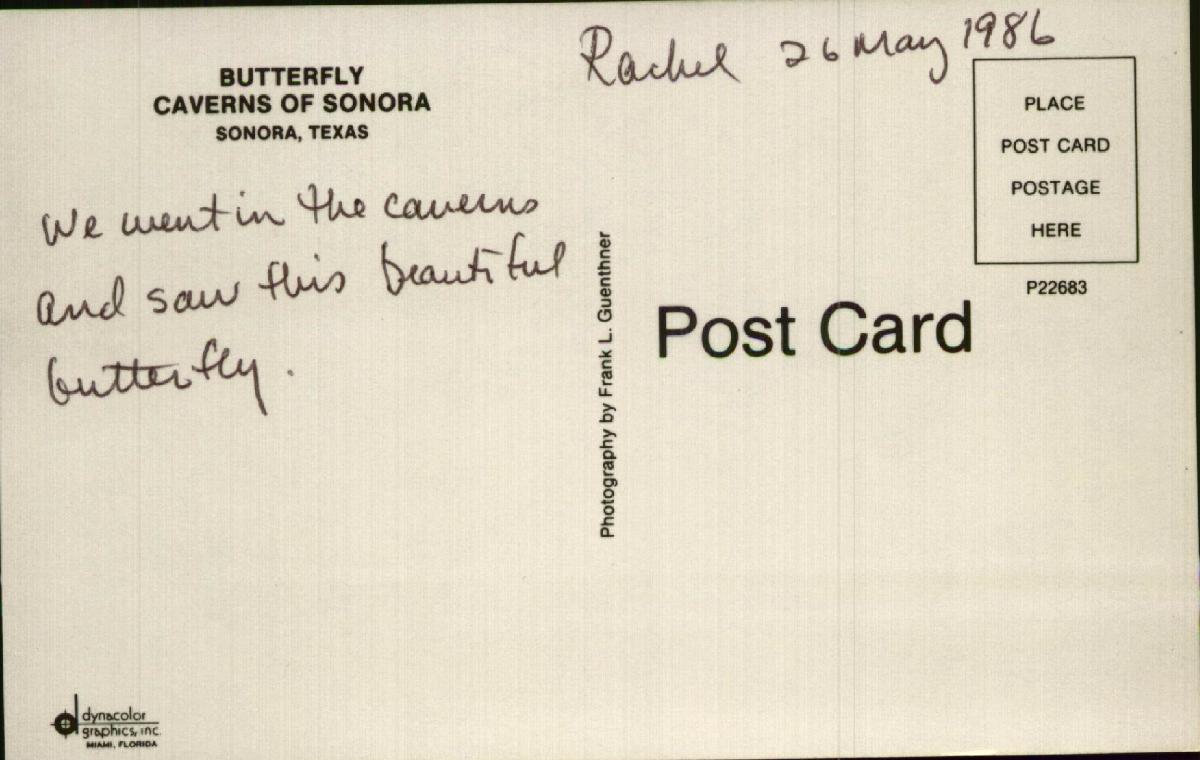 Rachel 26 May 1986
BUTTERFLY
CAVERNS OF SONORA
SONORA, TEXAS
We went in the caverns
and saw this beautiful
butterfly.
Photography by Frank L. Guenthner
PLACE
POST CARD
POSTAGE
HERE
P22683
Post Card
dynacolor
graphics, inc.
MIAMI, FLORIDA